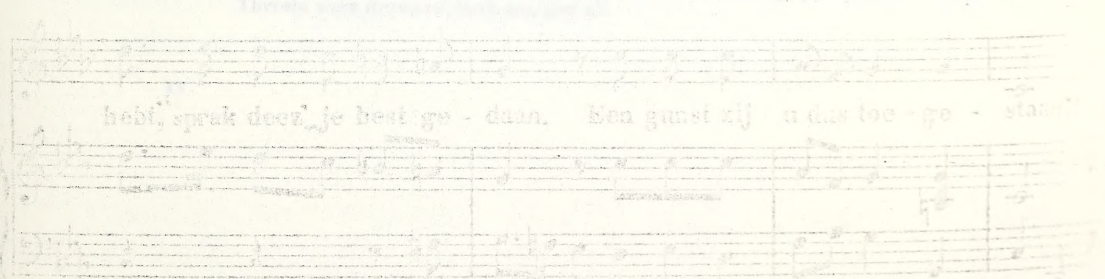 hebt, sprak deez' je best ge - daan. Een gunst zij u dus toe - ge - staan